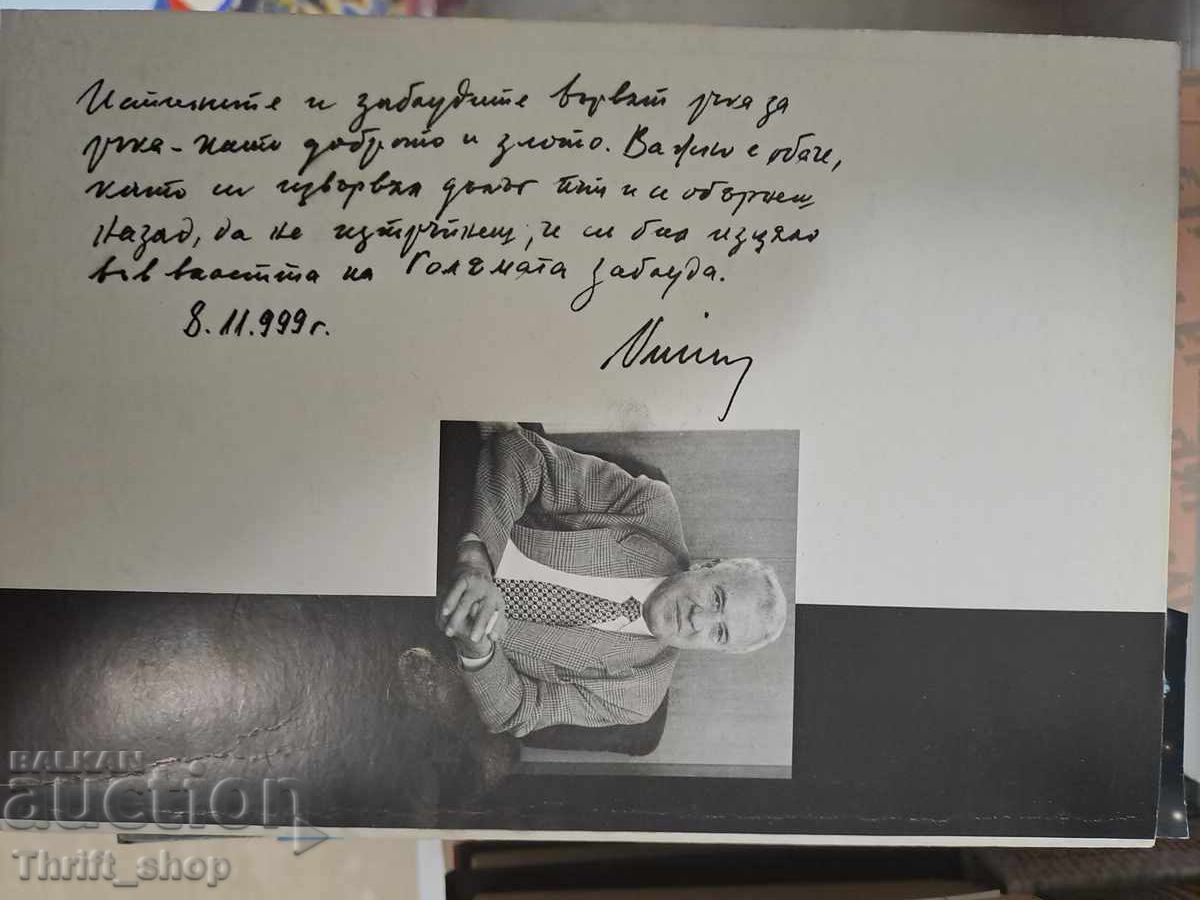 Истините и заблудите вървят ръка за
ръка - като доброто и злото. Важно е обаче,
като си извървял дълъг път и се обърнеш
назад, да не изтръпнеш, че си бил изцяло
във властта на Голямата заблуда.
8.11.999г.
BALKAN
auction
Thrift_shop